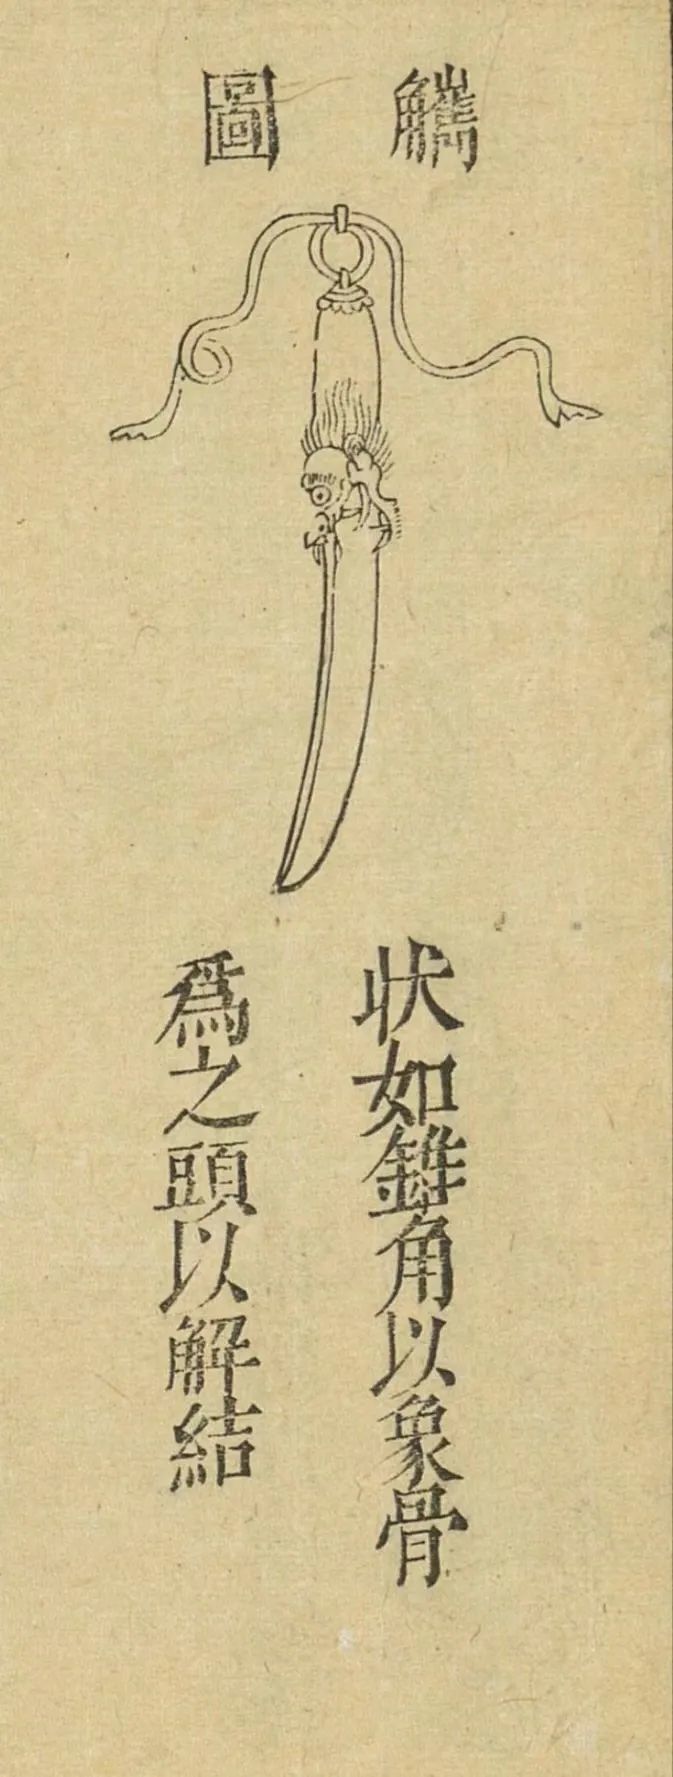 觿圖
状如錐角以象骨
爲之頭以解結